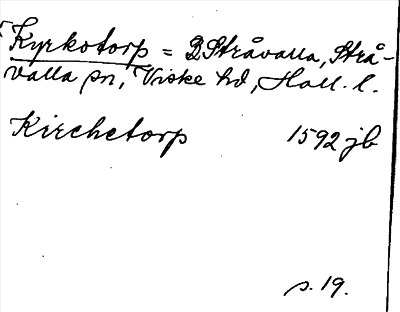 Kyrkotorp = 2 Stråvalla, Strå-
valla sn, Viske hd, Hall. l.
Kirchetorp 1592 jb
s. 19.